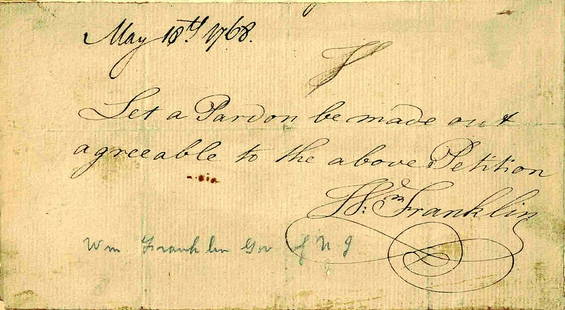 May 18th 1768.
Let a Pardon be made out
agreeable to the above Petition
Wm: Franklin
Wm Franklin Gov of N J